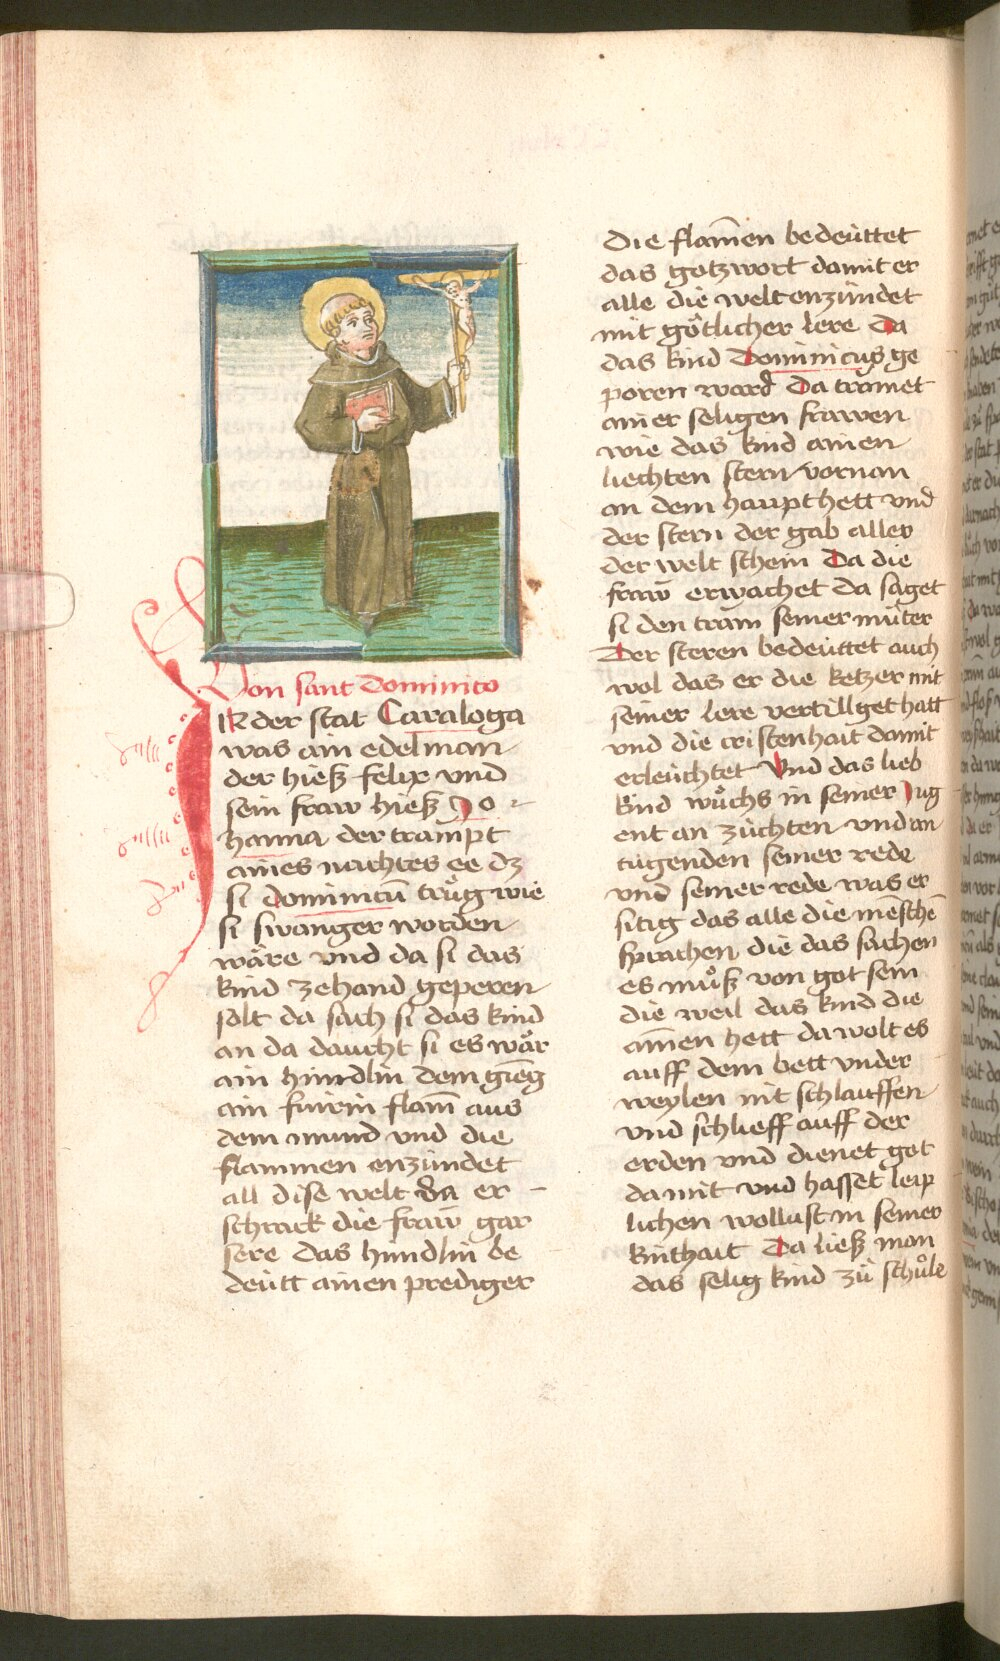 Von sant Dominico
IN der stat Caraloga
was ain edelman
der hieß felix vnd
sein fraw hieß Jo
hanna der trampt
aines nachtes ee dz
si dominicū trůg wie
si swanger worden
wäre vnd da si das
kind zehand geperen
solt da sach si das kind
an da daucht si es wår
ain hündlin dem gieng
ain fuirin flam̄ aus
dem mund vnd die
flammen enzündet
all dise welt Da er
schrack die fraw gar
sere das hündlin be
deutt ainen prediger
die flam̄en bedeüttet
das gotzwort damit er
alle die welt enzündet
mit götlicher lere Da
das kind Dominicus ge
poren ward Da tramet
ainer seligen frawen
wie das kind ainen
liechten stern vornan
an dem haupt hett vnd
der stern der gab aller
der welt schein Da die
fraw erwachet da saget
si den tram seiner můter
Der steren bedeüttet auch
wol das er die ketzer mit
seiner lere vertillget hatt
vnd die cristenhait damit
erleüchtet Vnd das lieb
kind wůchs in seiner Jug
ent an züchten vnd an
tugenden seiner rede
vnd seiner rede was er
sitig das alle die mēschē
sprachen die das sachen
es můß von got sein
die weil das kind die
am̄en hett da wolt es
auff dem bett vnder
weylen nit schlauffen
vnd schlieff auff der
erden vnd dienet got
damit vnd hasset leip
lichen wollust in seiner
kinthait Da ließ man
das selig kind zů schůle